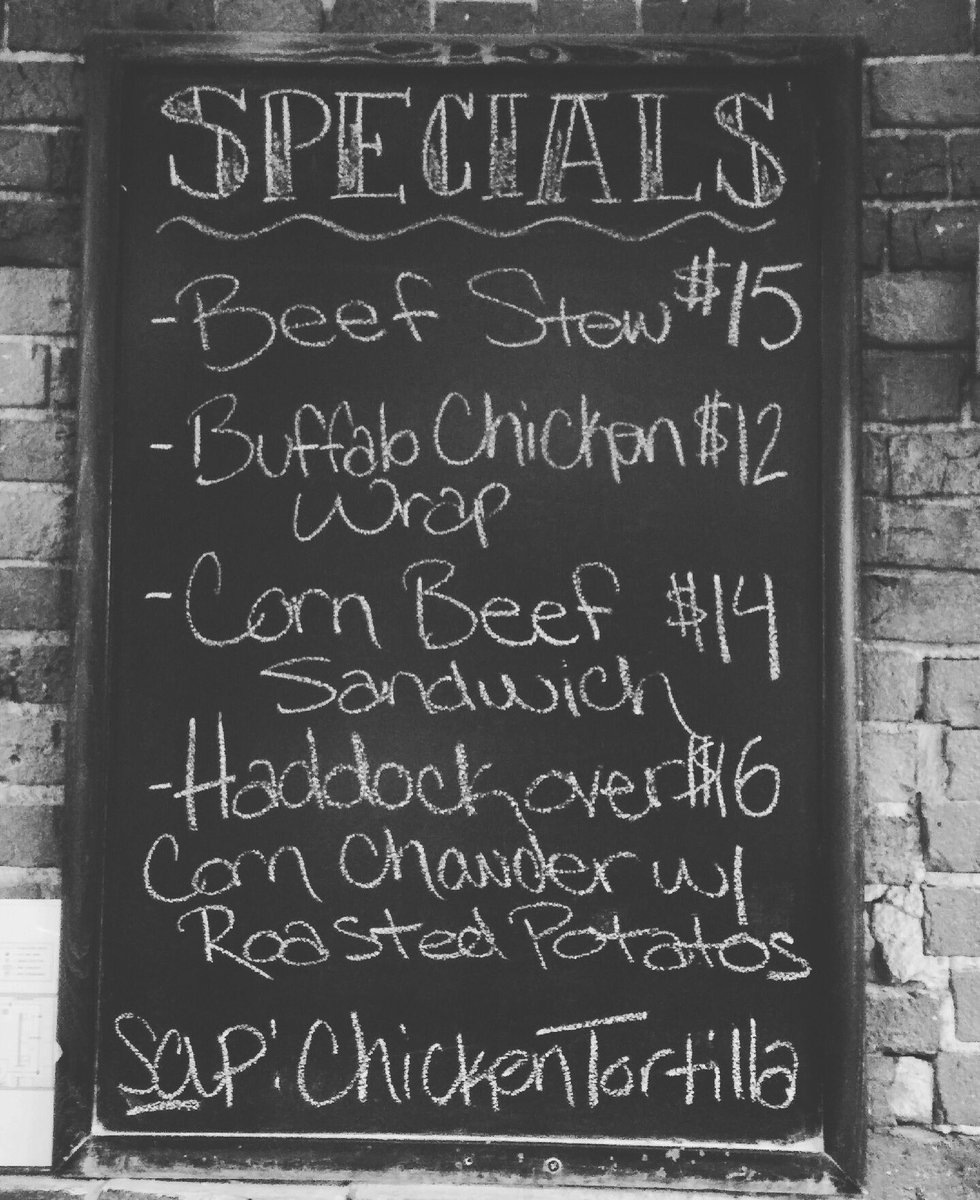 SPECIALS
- Beef Stew $15
- Buffalo Chicken $12
Wrap
- Corn Beef $14
Sandwich
- Haddock over $16
Corn Chawder w/
Roasted Potatos
Soup: Chicken Tortilla